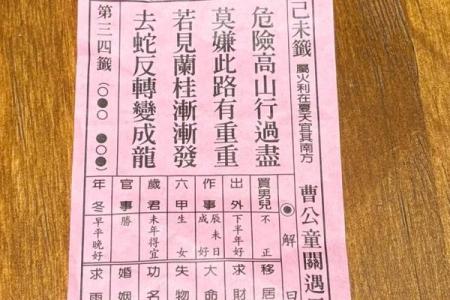 己未籤
屬火利在夏天宜其南方
危險高山行過盡
莫嫌此路有重重
若見蘭桂漸漸發
去蛇反轉變成龍
第三四籤(○●○ ●○●)
曹公童關遇
◉解
買男兒 不正
出外 下半年好
作事 辰未日成好
六甲 生女
歲君 未年得宜
官事 勝
年冬 早平晚好
移居
求財
大命
失物
功名
婚姻
求雨